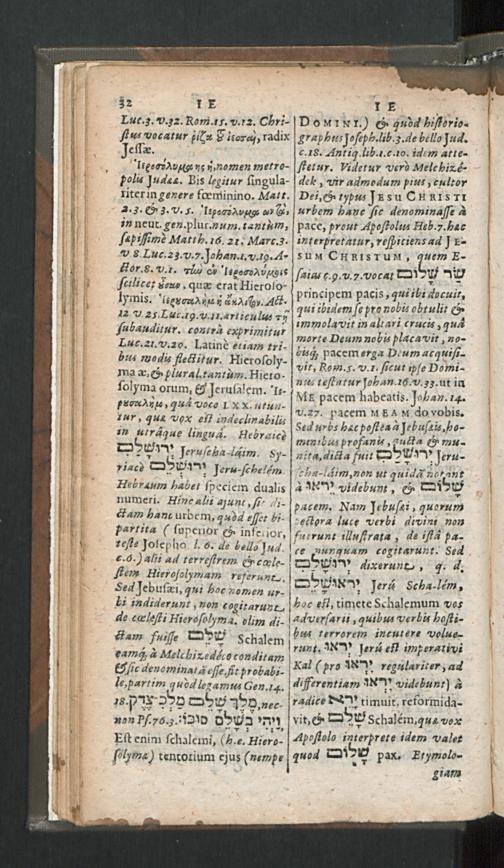 32 I E
Luc.3.v.32. Rom.15.v.12. Chri-
stus vocatur ῥίζα Ἰεσσαὶ, radix
Jessæ.
Ἱεροσόλυμα ης ἡ, nomen metro-
polis Judææ. Bis legitur singula-
riter in genere fœminino. Matt.
2.3. & 3.v.5. Ἱεροσόλυμα ων τὰ,
in neut. gen. plur. num. tantùm,
sæpissimè Matth. 16. 21. Marc.3.
v 8 Luc.23.v.7. Johan.1.v.19. A-
ctor.8.v.1. τῶν ἐν Ἱεροσολύμοις
scilicet, quæ erat Hieroso-
lymis. Ἱερουσαλὴμ ἡ ἄκλιτον. Act.
12 v 25 Luc.19.v.11. articulus τῇ
subauditur. contrà exprimitur
Luc.21.v.20. Latinè etiam tri-
bus modis flectitur. Hierosoly-
ma æ, & plural. tantùm. Hiero-
solyma orum, & Jerusalem. Ἱε-
ρουσαλὴμ, quâ voce LXX. utun-
tur, quæ vox est indeclinabilis
in utrâque linguâ. Hebraicè
יְרוּשָׁלַיִם Jeruscha-láim. Sy-
riacè יְרוּשְׁלֵם Jeru-schelém
Hebræum habet speciem dualis
numeri. Hinc alii ajunt, sic di-
ctam hanc urbem, quòd esset bi-
partita ( superior & inferior,
teste Josepho l. 6. de bello Jud.
c.6.) alii ad terrestrem & cœle-
stem Hierosolymam referunt.
Sed Jebusæi, qui hoc nomen ur-
bi indiderunt, non cogitarunt
de cœlesti Hierosolyma. olim di-
ctam fuisse שָׁלֵם Schalem
eamq́; à Melchizedéco conditam
& sic denominatã esse, fit probabi-
le, partim quòd legamus Gen.14.
18. מֶלֶךְ שָׁלֵם מַלְכִּי־צֶדֶק, nec-
non Ps.76.3. וַיְהִי בְשָׁלֵם סוּכּוֹ׃
Est enim schalemi, (h.e. Hiero-
solymæ) tentorium ejus (nempe
I E
DOMINI.) & quòd historio-
graphus Joseph. lib.3. de bello Jud.
c.18. Antiq.lib.1.c.10. idem atte-
stetur. Videtur verò Melchizé-
dek, vir admodum pius, cultor
Dei, & typus JESU CHRISTI
urbem hanc sic denominâsse à
pace, prout Apostolus Heb.7. hæc
interpretatur, respiciens ad JE-
SUM CHRISTUM, quem E-
saias c.9.v.7. vocat שַׂר שָׁלוֹם
principem pacis, qui ibi docuit,
qui ibidem se pro nobis obtulit &
immolavit in altari crucis, quâ
morte Deum nobis placavit, no-
bisq́; pacem erga Deum acquisi-
vit, Rom.5.v.1. sicut ipse Domi-
nus testatur Johan.16.v.33. ut in
ME pacem habeatis. Johan. 14.
v.27. pacem MEAM do vobis.
Sed urbs hæc postea à Jebusæis, ho-
minibus profanis, aucta & mu-
nita, dicta fuit יְרוּשָׁלַיִם Jeru-
scha-láim, non ut quidã norant
à יִרְאוּ videbunt, & שָׁלוֹם
pacem. Nam Jebusæi, quorum
pectora luce verbi divini non
fuerunt illustrata, de istâ pa-
ce nunquam cogitarunt. Sed
יְרוּשָׁלֵם dixerunt, q. d.
יְראוּשָׁלֵם Jerú Scha-lém,
hoc est, timete Schalemum vos
adversarii, quibus verbis hosti-
bus terrorem incutere volue-
runt. יְראוּ Jerú est imperativi
Kal ( pro יִרְאוּ regulariter, ad
differentiam יִרְאוּ videbunt) à
radice יָרֵא timuit, reformida-
vit, & שָׁלֵם Schalém, quæ vox
Apostolo interprete idem valet
quod שָׁלוֹם pax. Etymolo-
giam